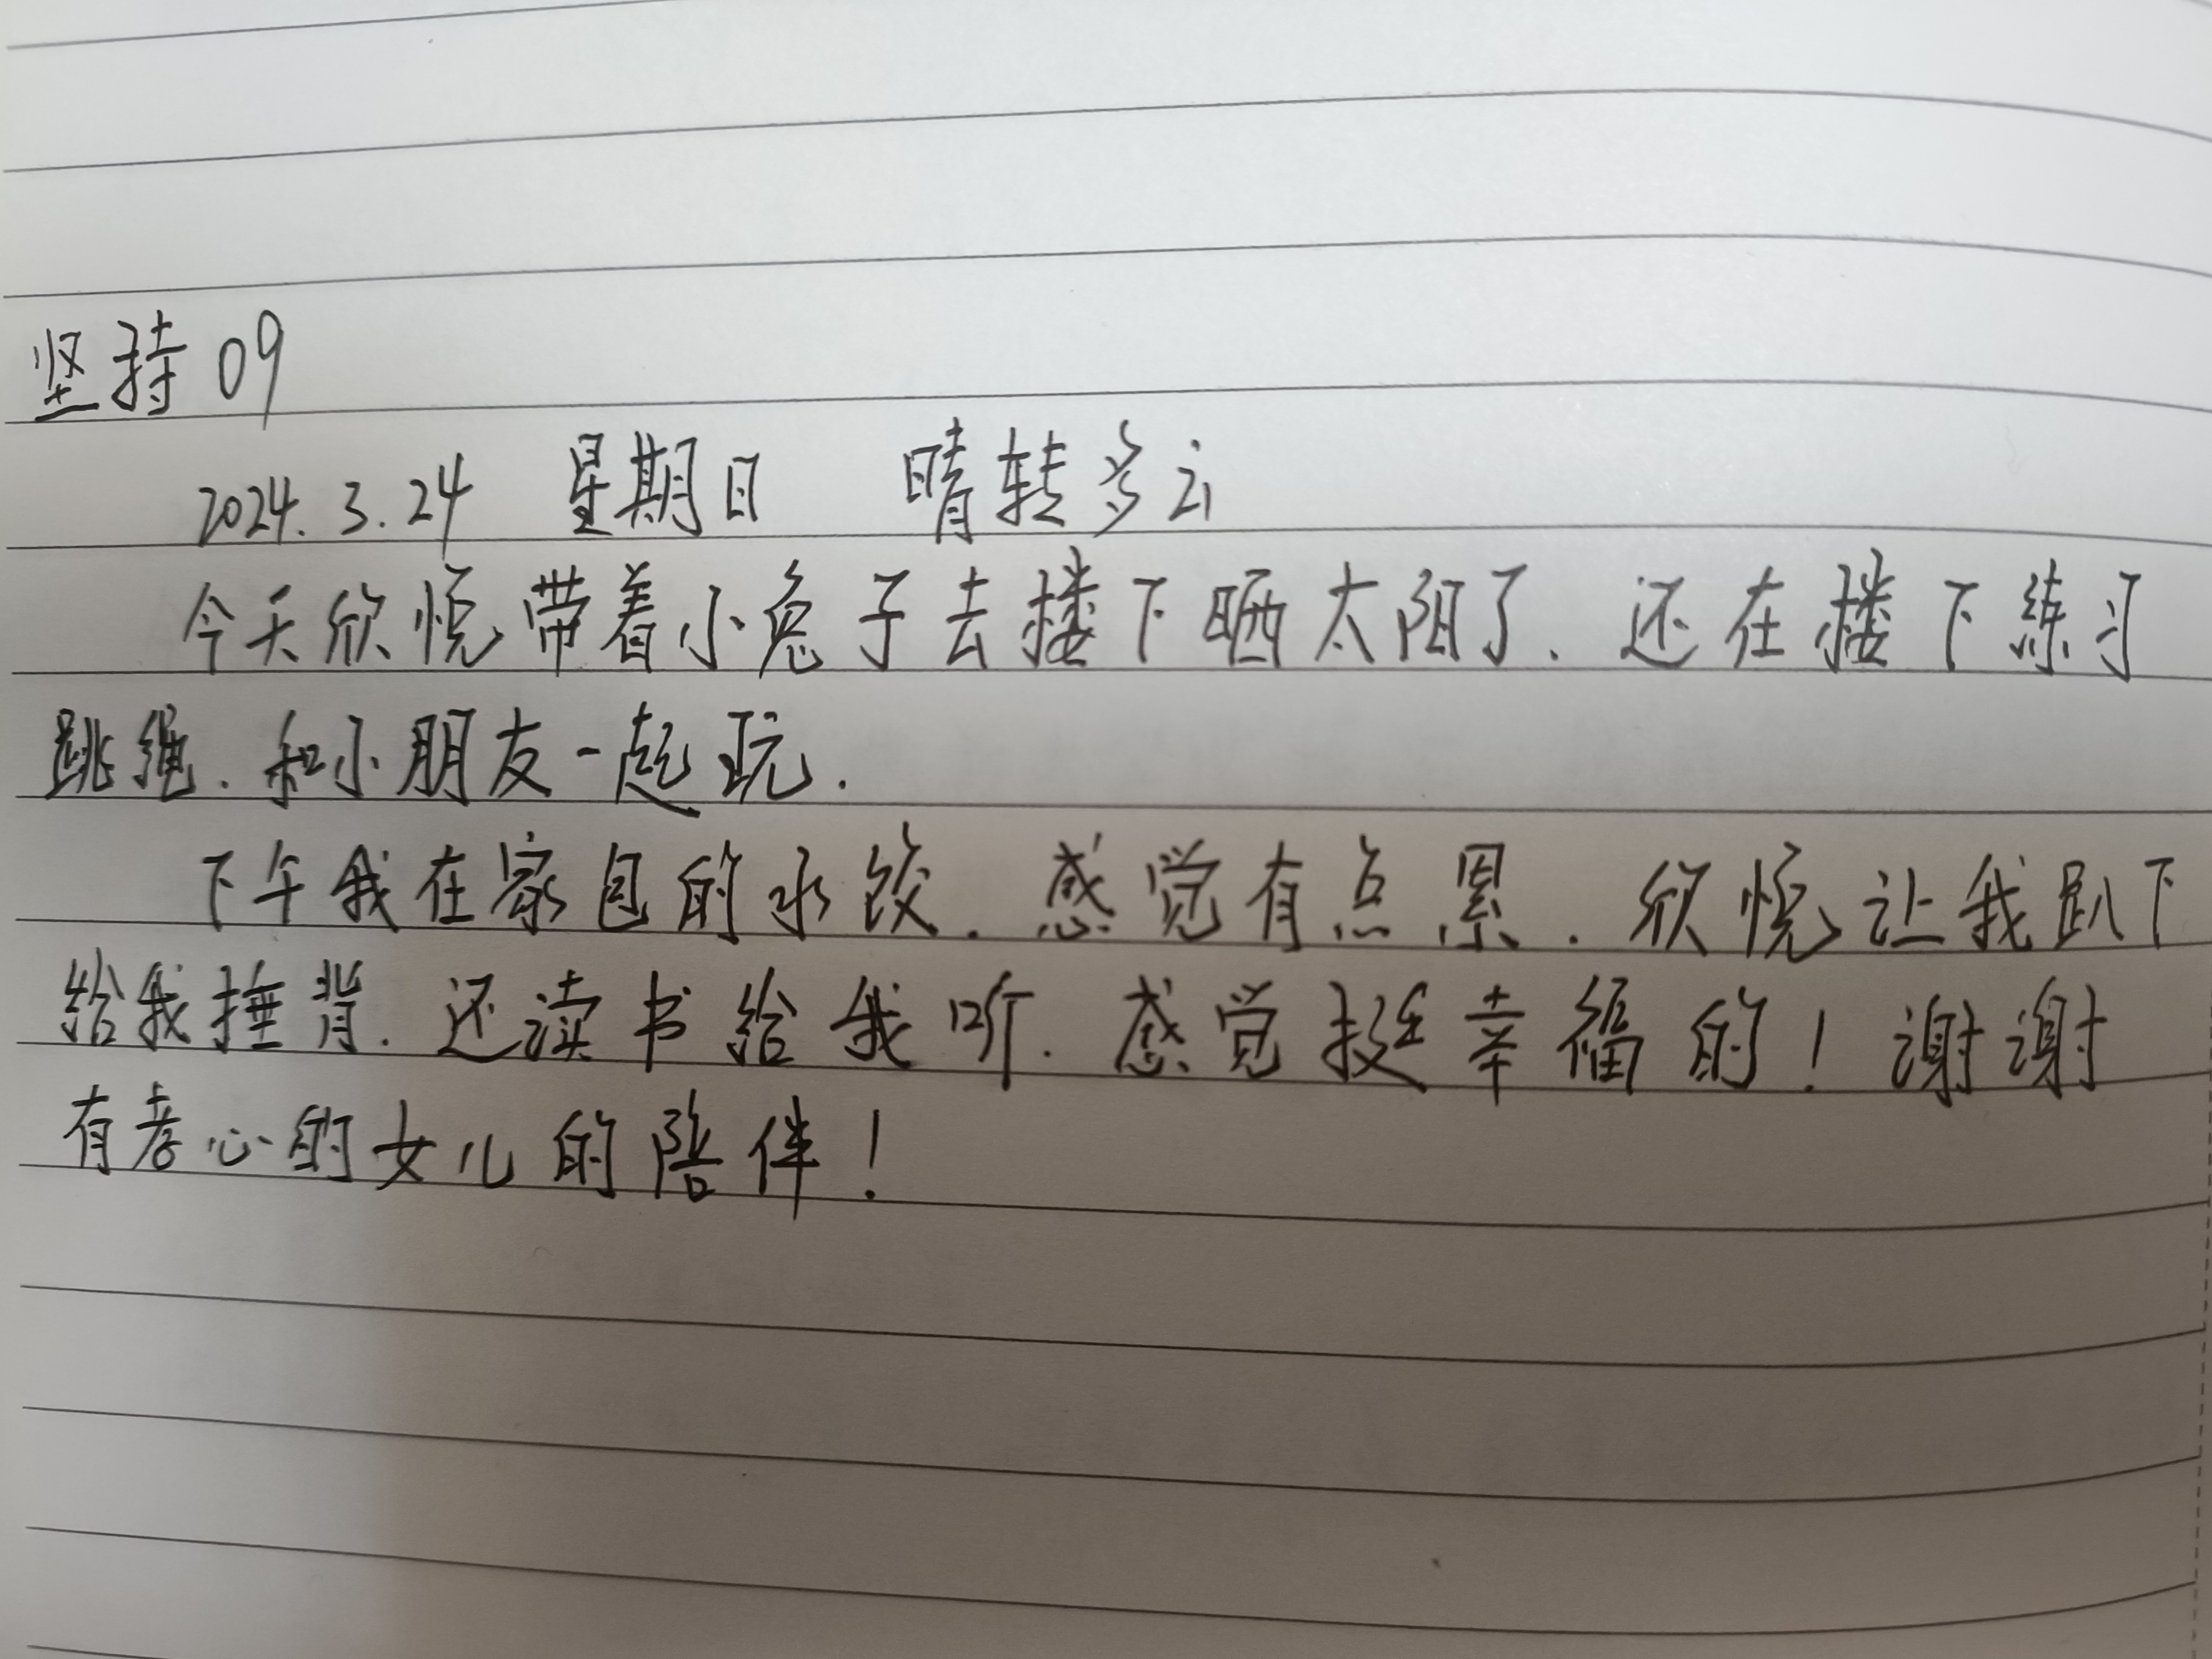 坚持09
2024.3.24 星期日 晴转多云
今天欣悦带着小兔子去楼下晒太阳了.还在楼下练习
跳绳.和小朋友一起玩.
下午我在家包的水饺.感觉有点累.欣悦让我趴下
给我捶背.还读书给我听.感觉挺幸福的!谢谢
有孝心的女儿的陪伴!